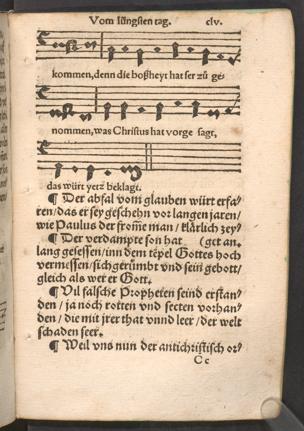 Vom Jüngsten tag. clv.
kommen, denn die boßheyt hat ser zů ge⸗
nommen, was Christus hat vorge sagt,
das würt yetz beklagt.
¶ Der abfal vom glauben würt erfa⸗
ren / das er sey geschehn vor langen jaren /
wie Paulus der from̃e man / klärlich zey⸗
¶ Der verdampte son hat (get an.
lang gesessen / inn dem tẽpel Gottes hoch
vermessen / sich gerümbt vnd sein gebott /
gleich als wer er Gott.
¶ Vil falsche Propheten seind erstan⸗
den / ja noch rotten vnd secten vorhan⸗
den / die mit jrer that vnnd leer / der welt
schaden seer.
¶ Weil vns nun der antichristisch or⸗
C c